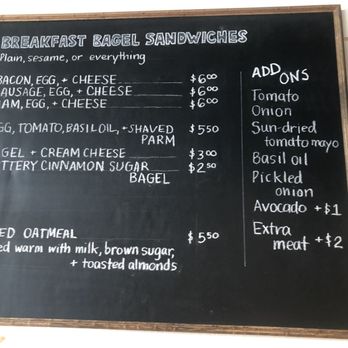 BREAKFAST BAGEL SANDWICHES
Plain, sesame, or everything
BACON, EGG, + CHEESE $6.00
SAUSAGE, EGG, + CHEESE $6.00
HAM, EGG, + CHEESE $6.00
EGG, TOMATO, BASIL OIL, + SHAVED $5.50
PARM
BAGEL + CREAM CHEESE $3.00
BUTTERY CINNAMON SUGAR $2.50
BAGEL
OATMEAL $5.50
warm with milk, brown sugar,
+ toasted almonds
ADD
ONS
Tomato
Onion
Sun-dried
tomato mayo
Basil oil
Pickled
onion
Avocado +$1
Extra
meat +$2